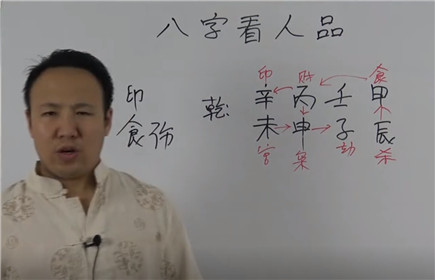 八字看人品
印 财 食
印 乾 辛 丙 壬 甲
食 未 申 子 辰
官 枭 劫 杀